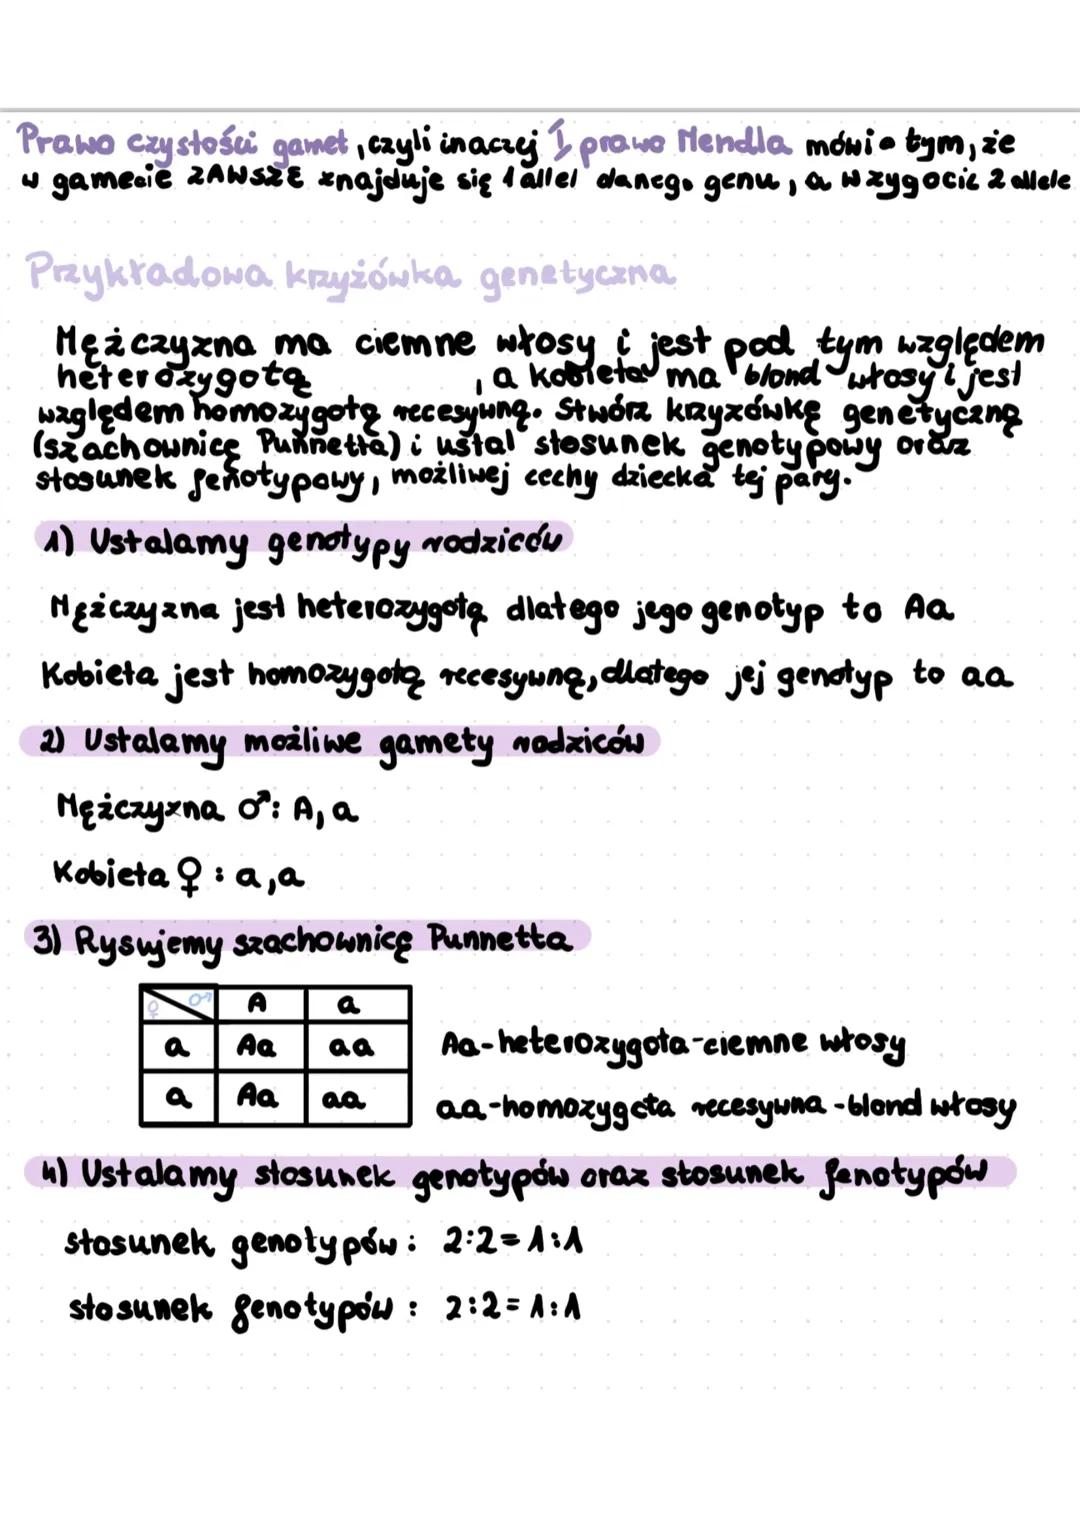 Prawo czystości gamet, czyli inaczej I prawo Mendla mówi o tym, że
w gamecie ZAWSZE znajduje się 1 allel danego genu, a w zygocie 2 allele
Przykładowa krzyżówka genetyczna
Mężczyzna ma ciemne włosy i jest pod tym względem
heterozygotą , a kobieta ma blond włosy i jest
względem homozygotą recesywną. Stwórz krzyżówkę genetyczną
(szachownicę Punnetta) i ustal stosunek genotypowy oraz
stosunek fenotypowy, możliwej cechy dziecka tej pary.
1) Ustalamy genotypy rodziców
Mężczyzna jest heterozygotą dlatego jego genotyp to Aa
Kobieta jest homozygotą recesywną, dlatego jej genotyp to aa
2) Ustalamy możliwe gamety rodziców
Mężczyzna ♂: A, a
Kobieta ♀: a, a
3) Rysujemy szachownicę Punnetta
♀ ♂ A a
a Aa aa
a Aa aa
Aa-heterozygota-ciemne włosy
aa-homozygota recesywna-blond włosy
4) Ustalamy stosunek genotypów oraz stosunek fenotypów
stosunek genotypów: 2:2=1:1
stosunek fenotypów: 2:2=1:1